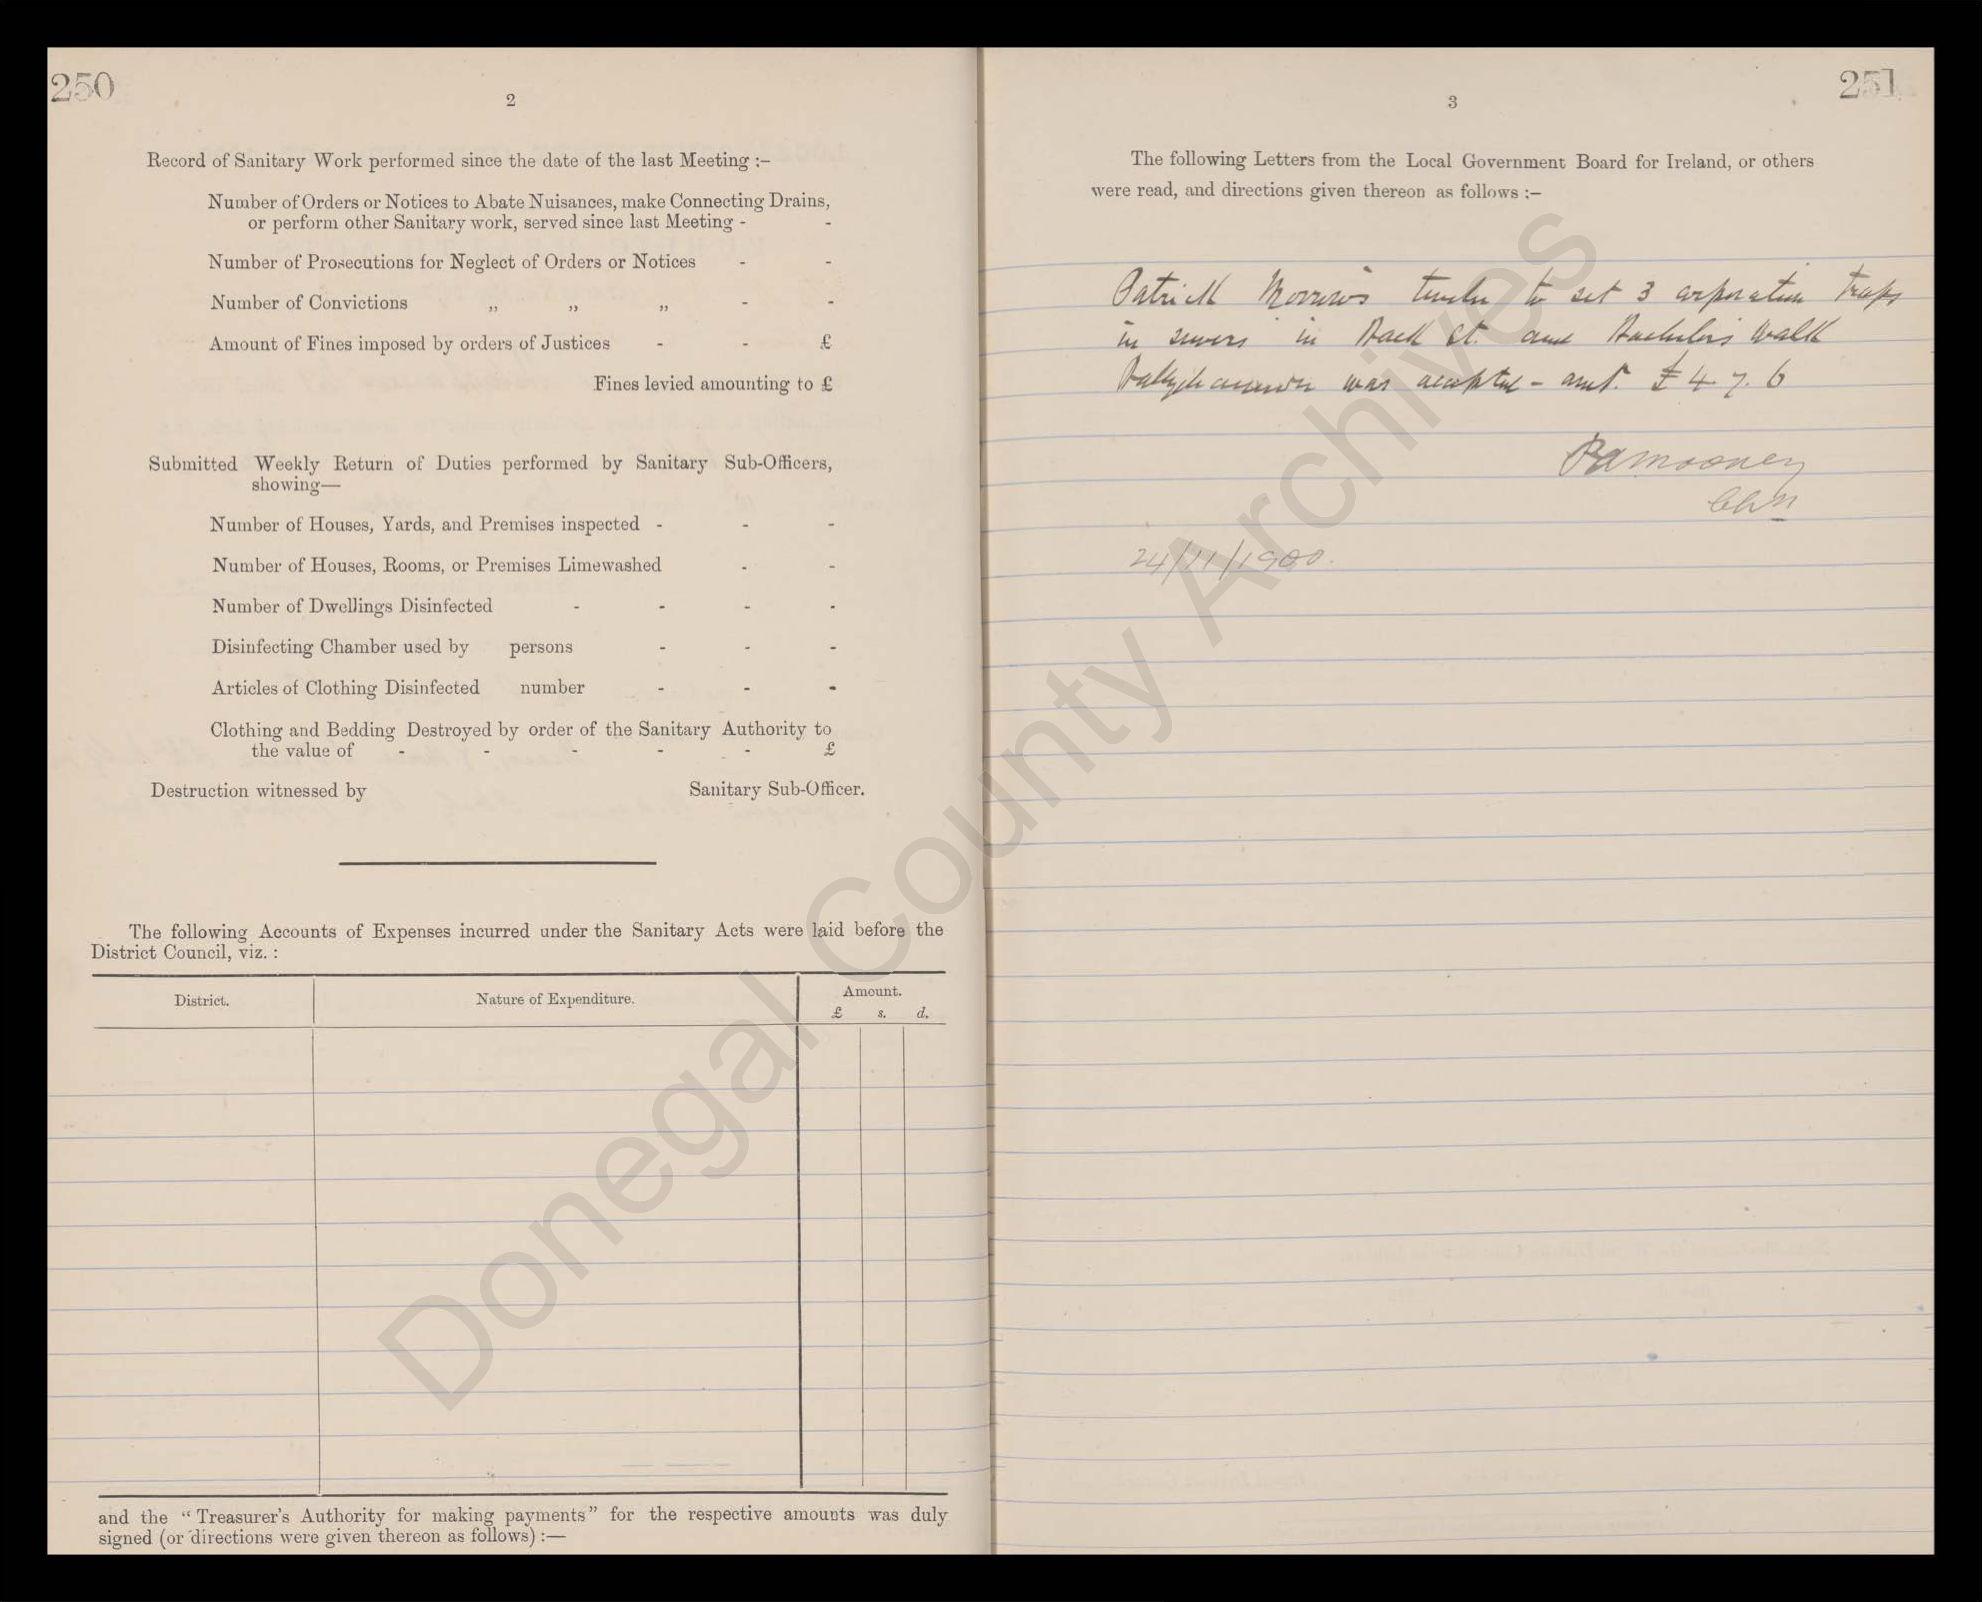 250
2
Record of Sanitary Work performed since the date of the last Meeting :–
Number of Orders or Notices to Abate Nuisances, make Connecting Drains,
or perform other Sanitary work, served since last Meeting - -
Number of Prosecutions for Neglect of Orders or Notices - -
Number of Convictions „ „ „ - -
Amount of Fines imposed by orders of Justices - - £
Fines levied amounting to £
Submitted Weekly Return of Duties performed by Sanitary Sub-Officers,
showing—
Number of Houses, Yards, and Premises inspected - - -
Number of Houses, Rooms, or Premises Limewashed - -
Number of Dwellings Disinfected - - - -
Disinfecting Chamber used by persons - - -
Articles of Clothing Disinfected number - - -
Clothing and Bedding Destroyed by order of the Sanitary Authority to
the value of - - - - - £
Destruction witnessed by Sanitary Sub-Officer.
The following Accounts of Expenses incurred under the Sanitary Acts were laid before the
District Council, viz. :
District. Nature of Expenditure. Amount.
£ s. d.
and the “Treasurer's Authority for making payments” for the respective amounts was duly
signed (or directions were given thereon as follows) :—
251
3
The following Letters from the Local Government Board for Ireland, or others
were read, and directions given thereon as follows :–
Patrick Morrow's tender to set 3 corporation traps
in sewers in Back St. and Bachelors Walk
Ballyshannon was accepted – amt. £4. 7. 6
Mooney
Chn
24/11/1900.
Donegal County Archives